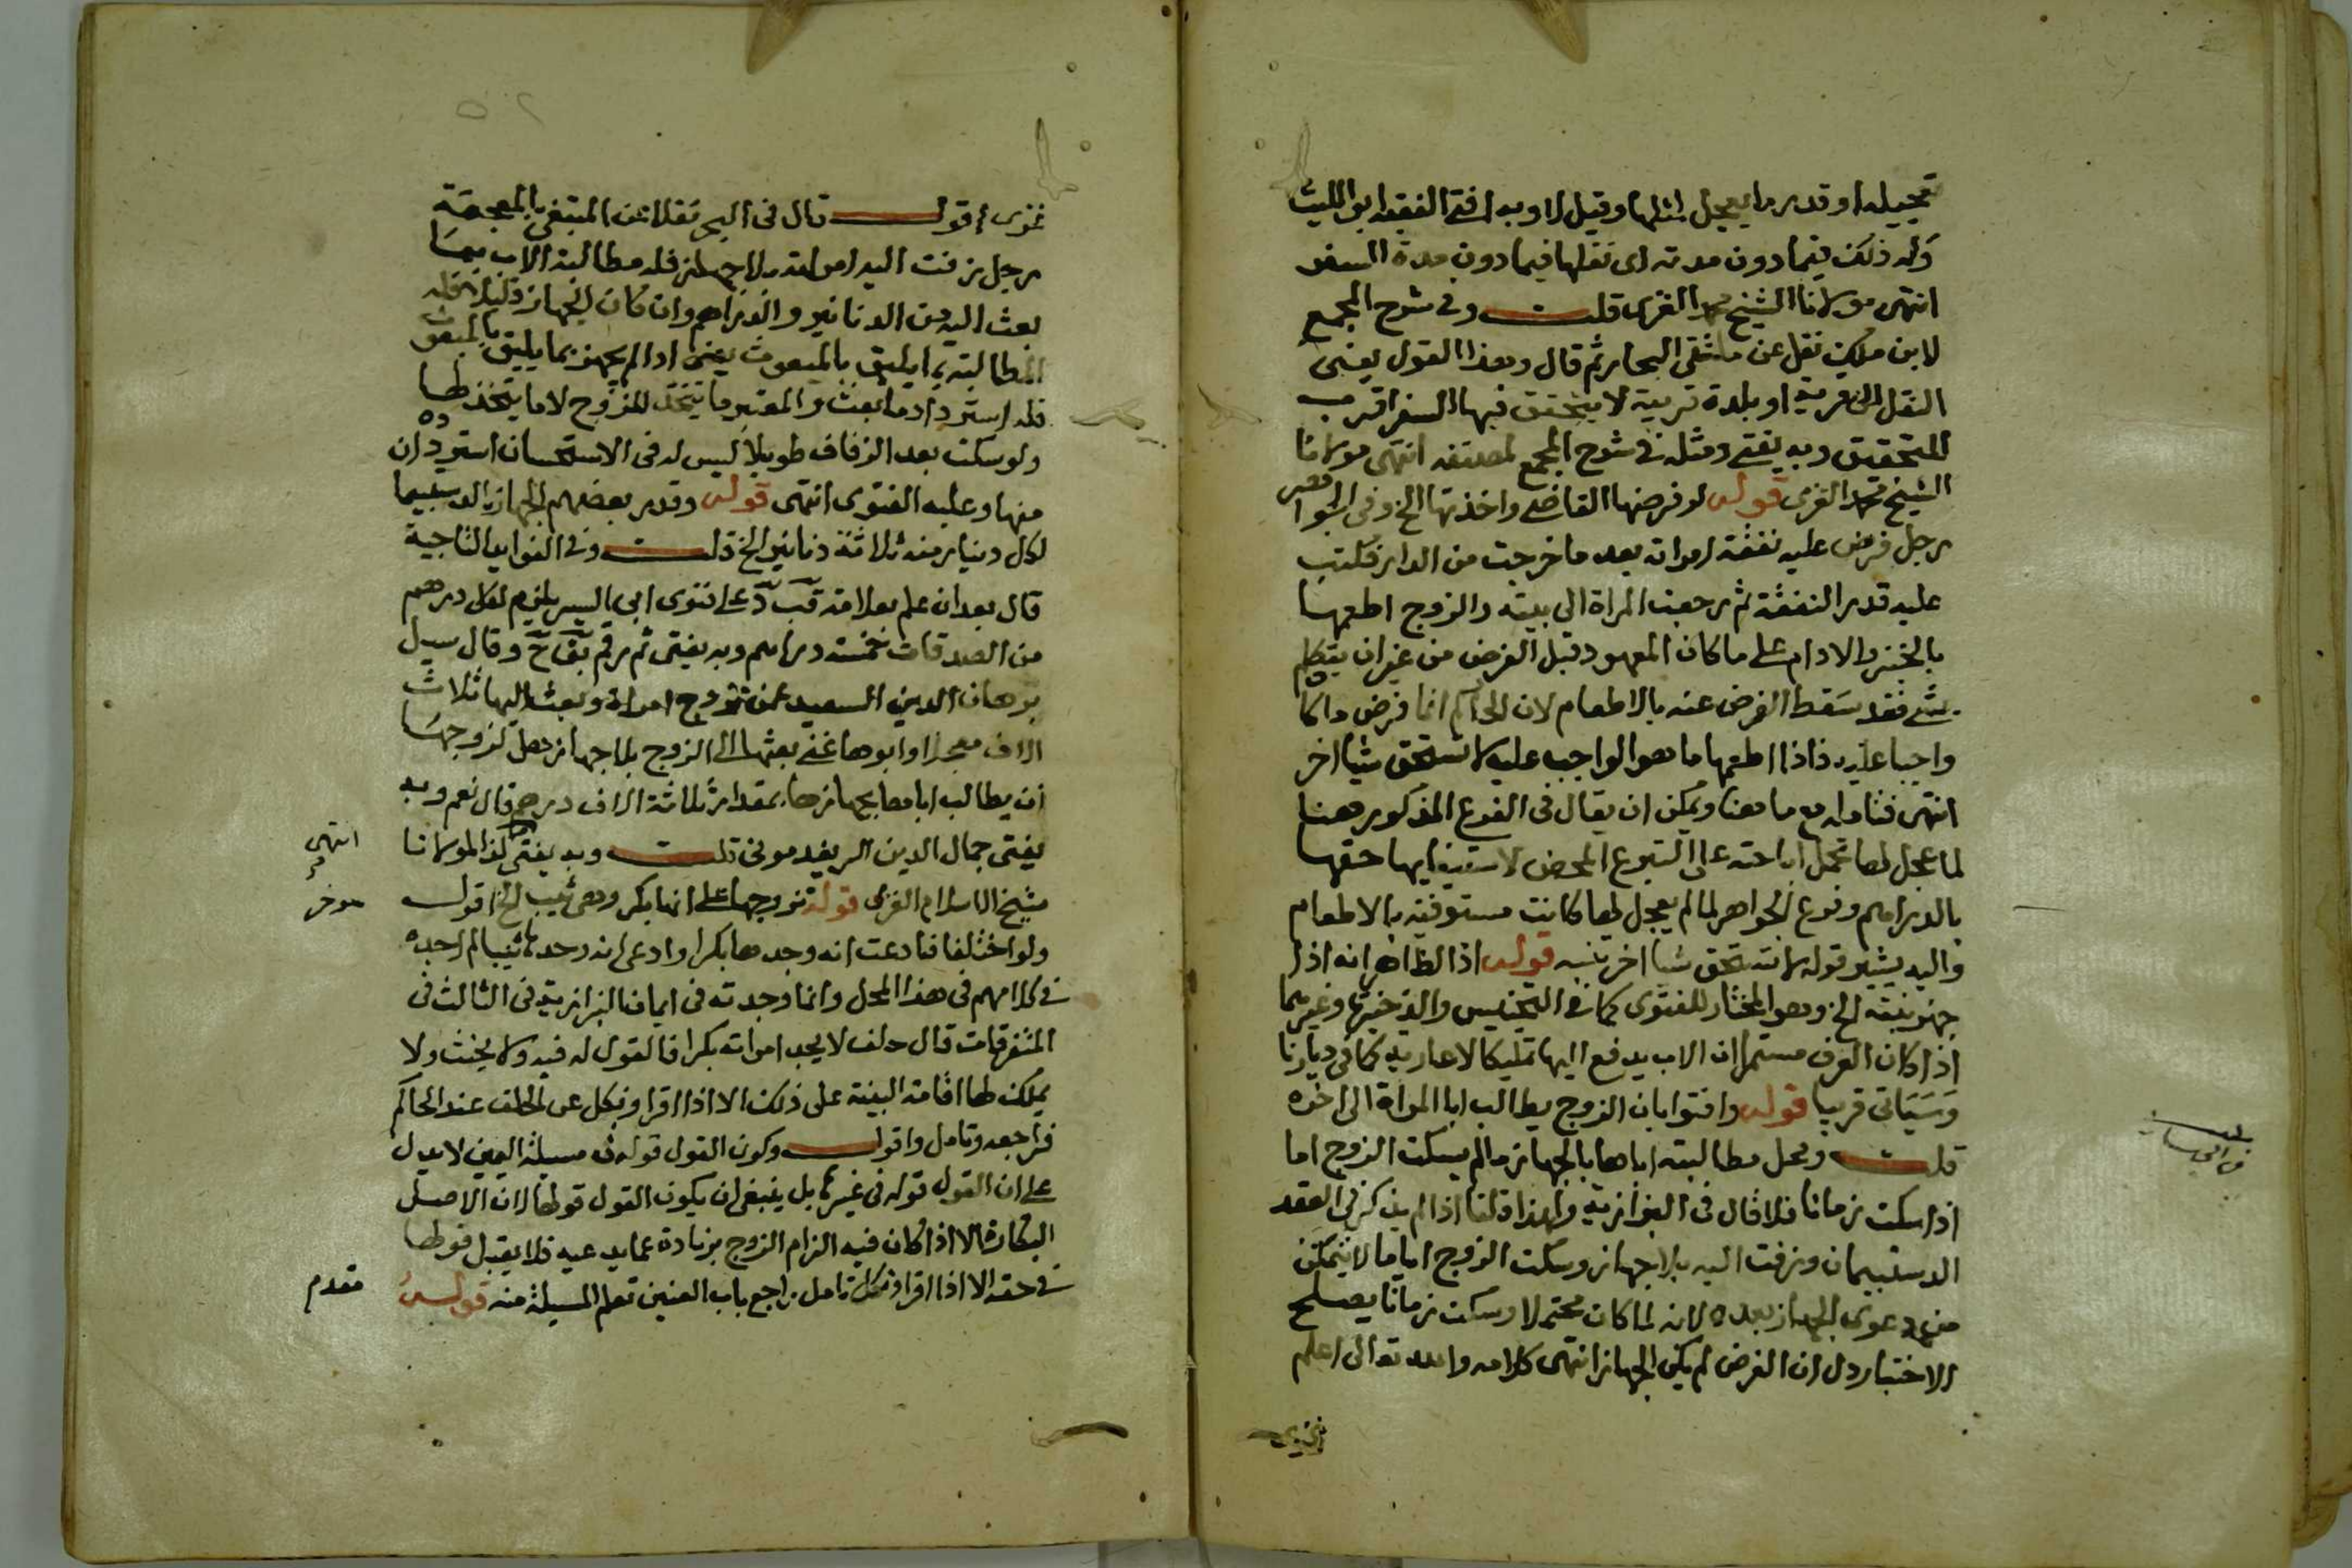 تعجيله او قدر ما يعجل لمثلها وقيل لا وبه افتى الفقيه ابو الليث
وله ذلك فيما دون مدته اى نقلها فيما دون مدة السفر
انتهى مولانا الشيخ محمد الغزى قلت وفى شرح المجمع
لابن ملك نقل عن ملتقى البحار ثم قال وهذا القول يعنى
النقل الى قرية او بلدة قريبة لا يتحقق فيها السفر اقرب
للتحقيق وبه يفتى ومثله فى شرح المجمع لمصنفه انتهى مولانا
الشيخ محمد الغزى قوله لو فرضها القاضى واخذتها الخ وفى الجواهر
رجل فرض عليه نفقة امراته بعد ما خرجت من الدار فكتب
عليه قدر النفقة ثم رجعت المراة الى بيته والزوج اطعمها
بالخبز والادام على ما كان المعهود قبل الفرض من غير ان يتكلم
بشى فقد سقط الفرض عنه بالاطعام لان الحاكم انما فرض ما كان
واجبا عليه فاذا اطعمها ما هو الواجب عليه لا تستحق شيا اخر
انتهى فتامله مع ما هنا ويمكن ان يقال فى الفرع المذكور هنا
لما عجل لها تحمل اباحته على التبرع المحض لاستيفايها حقها
بالدراهم وفرع الجواهر لما لم يعجل لها كانت مستوفية بالاطعام
واليه يشير قوله لا تستحق شيا اخر تنبه قوله اذ الظاهر انه اذا
جهز بنته الخ وهو المختار للفتوى كما فى التجنيس والذخيرة وغيرهما
اذا كان العرف مستمرا ان الاب يدفع اليها تمليكا لا عارية كما فى ديارنا
وسياتى قريبا قوله وافتوا بان الزوج يطالب ابا المراة الى اخره
قلت ومحل مطالبته اباها بالجهاز ما لم يسكت الزوج اما
اذا سكت زمانا فلا قال فى البزازية ولهذا قلنا اذا لم يذكر فى العقد
الدستيمان وزفت اليه بلا جهاز وسكت الزوج اياما لا يتمكن
من دعوى الجهاز بعده لانه لما كان محتملا وسكت زمانا يصلح
الاختيار دل ان الغرض لم يكن الجهاز انتهى كلامه والله تعالى اعلم
غزى اقول قال فى البحر نقلا عن المبتغى بالمعجمة
رجل زفت اليه امراته بلا جهاز فله مطالبة الاب بما
بعث اليه من الدنانير والدراهم وان كان الجهاز قليلا فله
المطالبة بما يليق بالمبعوث يعنى اذا لم يجهز بما يليق بالمبعوث
فله استرداد ما بعث والمعتبر ما يتخذ للزوج لا ما يتخذ لها
ولو سكت بعد الزفاف طويلا ليس له فى الاستحسان استرداده
منها وعليه الفتوى انتهى قوله وقدر بعضهم الجهاز بالدستيما
لكل دينار منه ثلاثة دنانير الخ قلت وفى الفوايد التاجية
قال بعد ان علم بعلامة قب دد على فتوى ابى اليسر يلزم لكل درهم
من الصدقات خمسة دراهم وبه يفتى ثم رقم بق خ وقال سيل
برهان الدين السعيد عمن تزوج امراة وبعث اليها ثلاث
الاف معجلا وابوها غنى بعثها الى الزوج بلا جهاز هل لزوجها
ان يطالب اباها بجهازها بمقدار ثلاثة الاف درهم قال نعم وبه
يفتى جمال الدين قلت وبه يفتى كذا لمولانا
شيخ الاسلام الغزى قوله تزوجها على انها بكر وهى ثيب الخ اقول
ولو اختلفا فادعت انه وجدها بكرا وادعى انه وجدها ثيبا لم اجده
فى كلامهم فى هذا المحل وانما وجدته فى ايمان البزازية فى الثالث فى
المتفرقات قال حلف لا يجد امراته بكرا فالقول له فيه ولا يحنث ولا
يمكن لها اقامة البينة على ذلك الا اذا اقر او نكل عن الحلف عند الحاكم
فراجعه وتامل واقول وكون القول قوله فى مسيلة اليمين لا يدل
على ان القول قوله فى غيرها بل ينبغى ان يكون القول قولها لان الاصل
البكارة الا اذا كان فيه الزام الزوج بزيادة عما يدعيه فلا يقبل قولها
فى حقه الا اذا اقر او نكل تامل راجع باب العنين تعلم المسيلة منه قوله
انتهى
موخر
مقدم